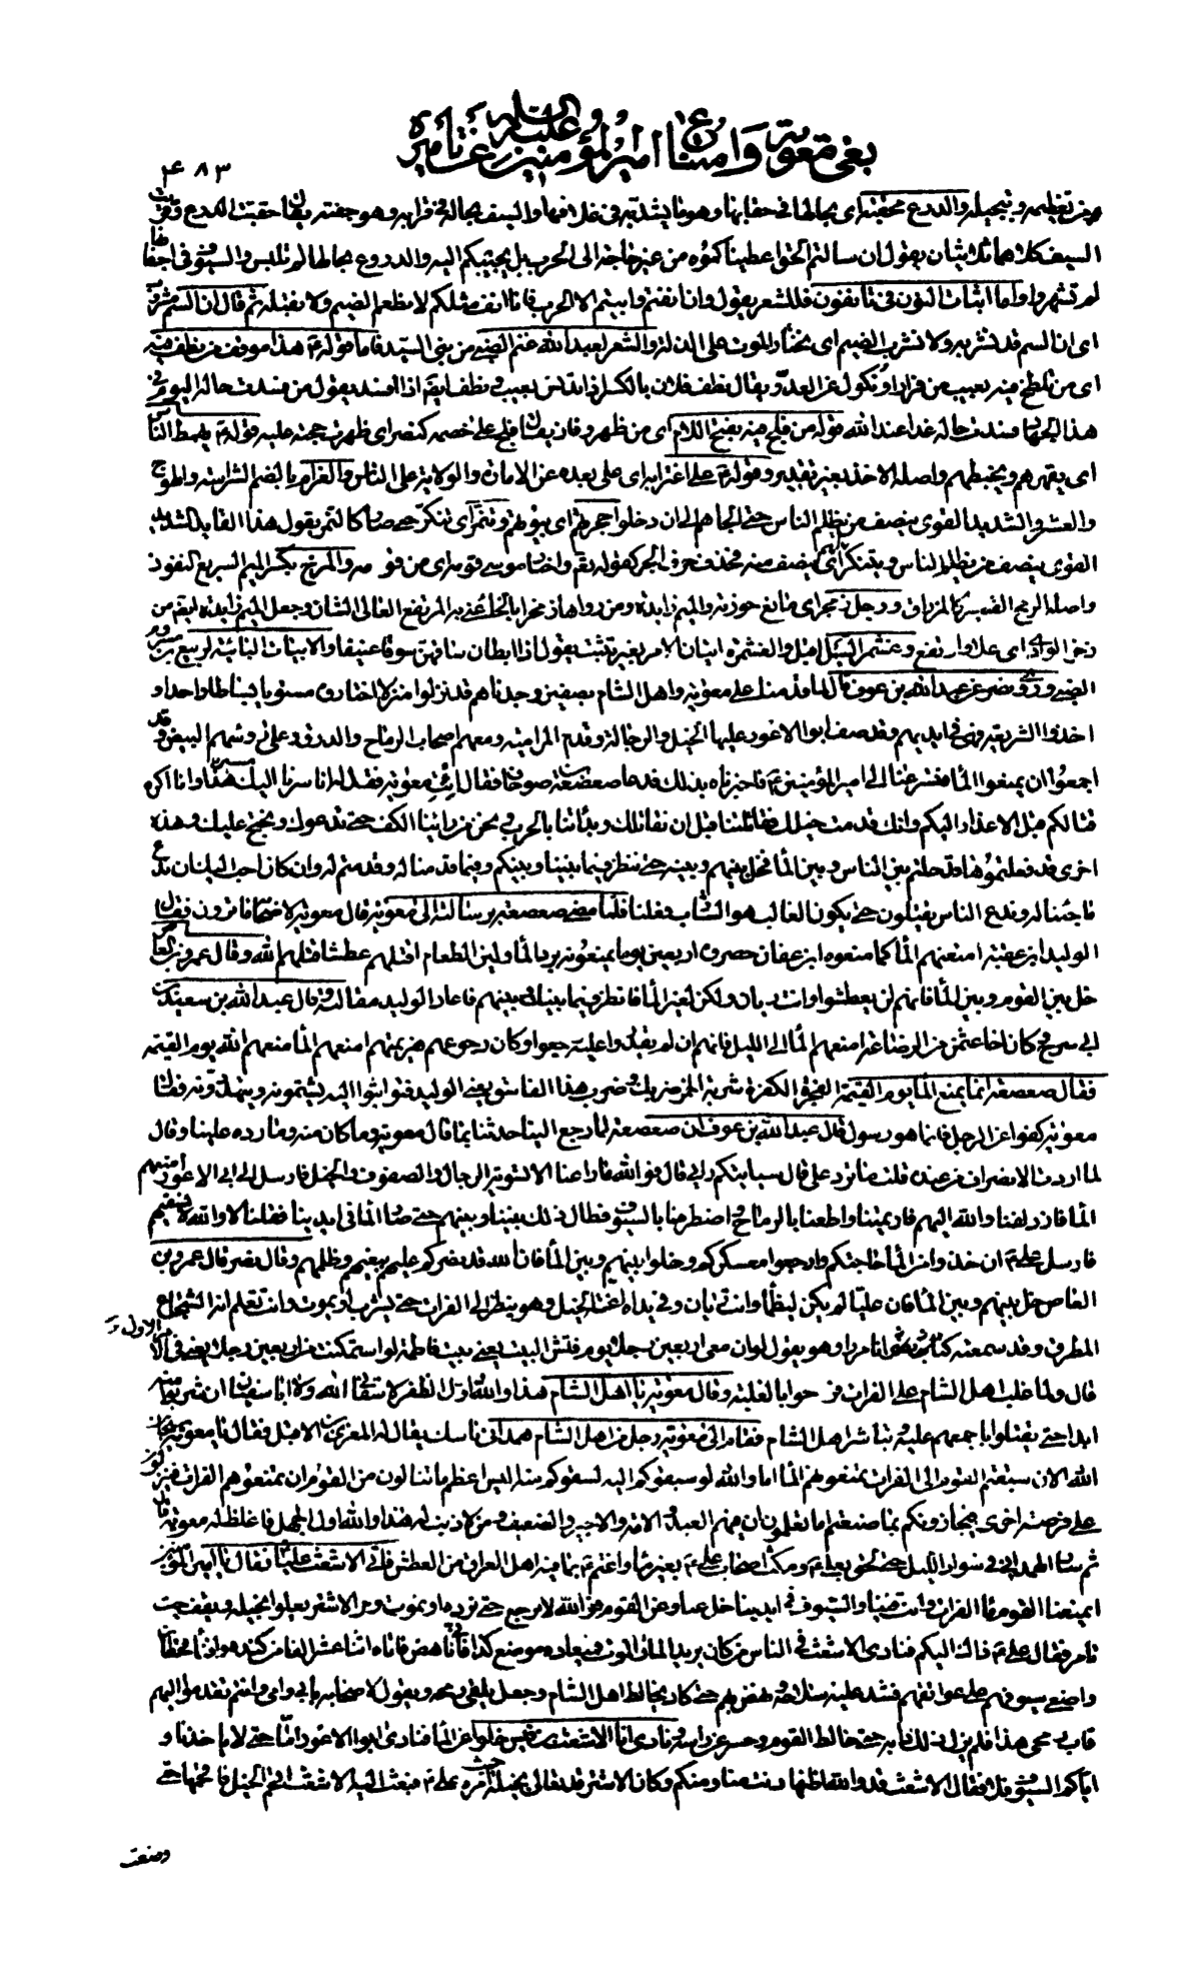 بغى معوية وامتناع امير المؤمنين عليه السلم عن تأميره
٤٨٣
من تعظيمه وتبجيله والدرع محقبة اى بحالها فى حقابها وهو ما يشد به فى غلافها والسيف بحاله فى قرابه وهو جفنه يقال حقبت الدرع وقربت
السيف كلاهما ثلاثيان يقول ان سالتم الحق اعطيناكموه من غير حاجة الى الحرب بل نجيبكم اليه والدروع بحالها لم تلبس والسيوف فى اجفانها
لم تشهر واما اثبات النون فى تانفون فللشعر يقول وان انفتم وابيتم الا الحرب فانا انف مثلكم لا نطعم الضيم ولا نقبله ثم قال ان السم مشروب
اى ان السم قد نشربه ولا نشرب الضيم اى نختار الموت على الذلة والشعر لعبد الله بن عنمة الضبى من بنى السيد فاما قوله ع هذا موقف من نطف فيه
اى من تلطخ فيه بعيب من فرار او نكول عن العدو يقال نطف فلان بالكسر اذا تدنس بعيب ونطف ايضا اذا فسد يقول من فسدت حاله اليوم فى
هذا الجهاد فسدت حاله غدا عند الله قوله من فلج فيه بفتح اللام اى من ظهر وفاز يقال فلج على خصمه كنصر اى ظهرت حجته عليه قوله ع يغمط الناس
اى يقهرهم ويخبطهم واصله الاخذ بغير تقدير وقوله ع على اغترابه اى على بعده عن الامارة والولاية على الناس والعرام بالضم الشراسة والهوج
والعسر والشديد القوى ينصف من يظلم الناس حتى الجاهم الى ان دخلوا حجرهم اى بيوتهم وتنمر اى تنكر حتى صار كالنمر يقول هذا القايد الشديد
القوى ينصف من يظلم الناس ويتنكر لهم اى ينصف منه فحذف حرف الجر كقوله تعم واختار موسى قومه اى من قومه والمزج بكسر الميم السريع النفوذ
واصله الرمح القصير كالمزراق ورجل زمجر اى مانع حوزته والميم زايدة ومن رواها زمخرا بالخاء عنى به المرتفع العالى الشان وجعل الميم زايدة ايضا من
زخر الوادى اى علا وارتفع وغشمر السيل اقبل والغشمرة اتيان الامر بغير تثبت يقول اذا ابطان ساقهن سوقا عنيفا والابيات البائية لربيعة بن مشروم
الضبى وروى نصر عن عبد الله بن عوف قال لما قدمنا على معوية واهل الشام بصفين وجدناهم قد نزلوا منزلا اختاروه مستويا بساطا واحدا و
اخذوا الشريعة فهى فى ايديهم وقد صف ابو الاعور عليها الخيل والرجالة وقدم المرامية ومعهم اصحاب الرماح والدرق وعلى رؤسهم البيض وقد
اجمعوا ان يمنعونا الماء ففزعنا الى امير المؤمنين ع فاخبرناه بذلك فدعا صعصعة بن صوحان فقال ائت معوية فقل له انا سرنا اليك مسيرنا هذا وانا اكره
قتالكم قبل الاعذار اليكم وانك قدمت خيلك فقاتلتنا قبل ان نقاتلك وبداتنا بالحرب ونحن من راينا الكف حتى ندعوك ونحتج عليك وهذه
اخرى قد فعلتموها قد حلتم بين الناس وبين الماء فخل بينهم وبينه حتى ننظر فيما بيننا وبينكم وفيما قدمنا له وقدمتم له وان كان احب اليك ان ندع
ما جئنا له وندع الناس يقتتلون حتى يكون الغالب هو الشارب فعلنا فلما مضى صعصعة برسالته الى معوية قال معوية لاصحابه ما ترون فقال
الوليد بن عقبة امنعهم الماء كما منعوه ابن عفان حصروه اربعين يوما يمنعونه برد الماء ولين الطعام اقتلهم عطشا قتلهم الله وقال عمرو بن العاص
خل بين القوم وبين الماء فانهم لن يعطشوا وانت ريان ولكن لغير الماء فانظر فيما بينك وبينهم فاعاد الوليد مقالته وقال عبد الله بن سعيد بن
ابى سرح وكان اخا عثمن من الرضاعة امنعهم الماء الى الليل فانهم ان لم يقدروا عليه رجعوا وكان رجوعهم هزيمتهم امنعهم الماء منعهم الله يوم القيمة
فقال صعصعة انما يمنع الماء يوم القيمة الفجرة الكفرة شربة الخمر ضربك وضرب هذا الفاسق يعنى الوليد فتواثبوا اليه يشتمونه ويتهددونه فقال
معوية كفوا عن الرجل فانما هو رسول قال عبد الله بن عوف ان صعصعة لما رجع الينا حدثنا بما قال معوية وما كان منه وما رده علينا وقال
لما اردت الانصراف من عنده قلت ما ترد على قال سياتيكم رايى قال فوالله ما راعنا الا تسوية الرجال والصفوف والخيل فارسل الى ابى الاعور امنعهم
الماء فازدلفنا والله اليهم فارتمينا واطعنا بالرماح واضطربنا بالسيوف فطال ذلك بيننا وبينهم حتى صار الماء فى ايدينا فقلنا لا والله لا نسقيهم
فارسل على ع ان خذوا من الماء حاجتكم وارجعوا معسكركم وخلوا بينهم وبين الماء فان الله قد نصركم عليهم ببغيهم وظلمهم وقال نصر قال عمرو بن
العاص خل بينهم وبين الماء فان عليا لم يكن ليظمأ وانت ريان وفى يده اعنة الخيل وهو ينظر الى الفرات حتى يشرب او يموت وانت تعلم انه الشجاع
المطرق وقد سمعته انا مرارا وهو يقول لو ان معى اربعين رجلا يوم فتش البيت يعنى بيت فاطمة لو استمكنت من اربعين رجلا يعنى فى الامر
الاول
قال ولما غلب اهل الشام على الفرات فرحوا بالغلبة وقال معوية يا اهل الشام هذا والله اول الظفر لا سقانى الله ولا ابا سفيان ان شربوا منه
ابدا حتى يقتلوا باجمعهم عليه وتباشر اهل الشام فقام الى معوية رجل من اهل الشام همدانى ناسك يقال له المعرى بن الاقبل فقال يا معوية سبحان
الله الان سبقتم القوم الى الفرات تمنعوهم الماء اما والله لو سبقوكم اليه لسقوكم منه اليس اعظم ما تنالون من القوم ان تمنعوهم الفرات فينزلون
على فرضة اخرى ويجازونكم بما صنعتم اما تعلمون ان فيهم العبد والامة والاجير والضعيف ومن لا ذنب له هذا والله اول الجهل فاغلظ له معوية قال
ثم سار الهمدانى فى سواد الليل حتى لحق بعلى ع ومكث اصحاب على ع بغير ماء واغتم ع بما فيه اهل العراق من العطش فاتى الاشعث عليا فقال يا امير المؤمنين
ايمنعنا القوم ماء الفرات وانت فينا والسيوف فى ايدينا خل عنا وعن القوم فوالله لا نرجع حتى نرده او نموت ومر الاشتر يعلو بخيله ويقف حيث
تامر فقال على ع ذلك اليكم فنادى الاشعث فى الناس من كان يريد الماء او الموت فميعاده موضع كذا فانى ناهض فاتاه اثنا عشر الفا من كندة
واضعى سيوفهم على عواتقهم فشد عليه سلاحه ونهض بهم حتى كاد يخالط اهل الشام وجعل يلقى رمحه ويقول لاصحابه بابى وامى وانتم تقدموا اليهم
قاب رمحى هذا فلم يزل ذلك دابه حتى خالط القوم وحسر عن راسه ونادى انا الاشعث بن قيس خلوا عن الماء فنادى ابو الاعور اما حتى لا ياخذنا و
اياكم السيوف فلا فقال الاشعث قد والله اظنها دنت منا ومنكم وكان الاشتر قد تعالى بخيله حيث امره على ع فبعث اليه الاشعث اقحم الخيل فاقحمها حتى
وضعت